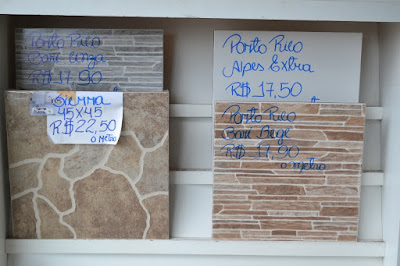 Porto Rico
Bari Cinza
R$17,90
Porto Rico
Alpes Extra
R$17,50
A
Siemma
45X45
R$22,50
o Metro
Porto Rico
Bari Bege
A
R$17,90
o Metro